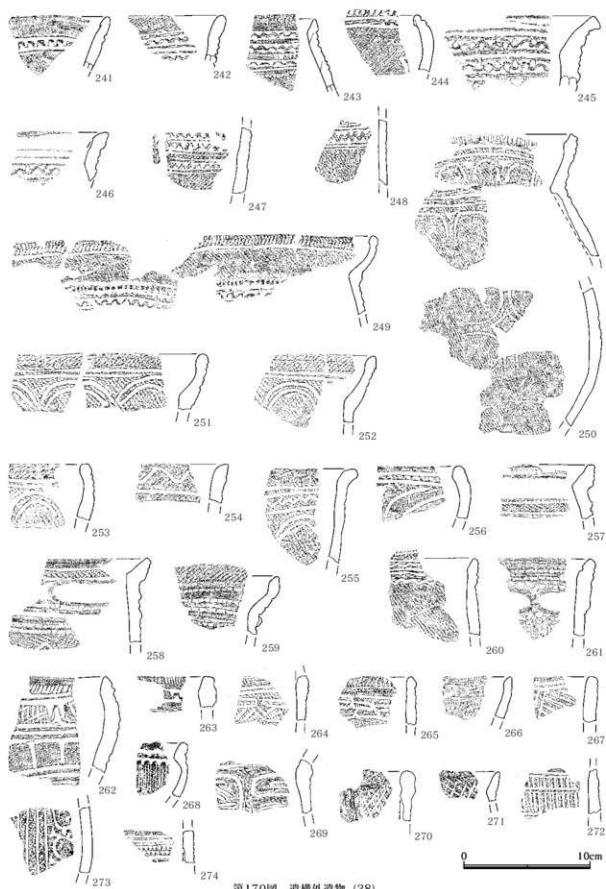 241 242 243 244 245
246 247 248
249 250
251 252
253 254 255 256 257
258 259 260 261
262 263 264 265 266 267
268 269 270 271 272
273 274
0 10cm
第170図 遺構外遺物 (38)